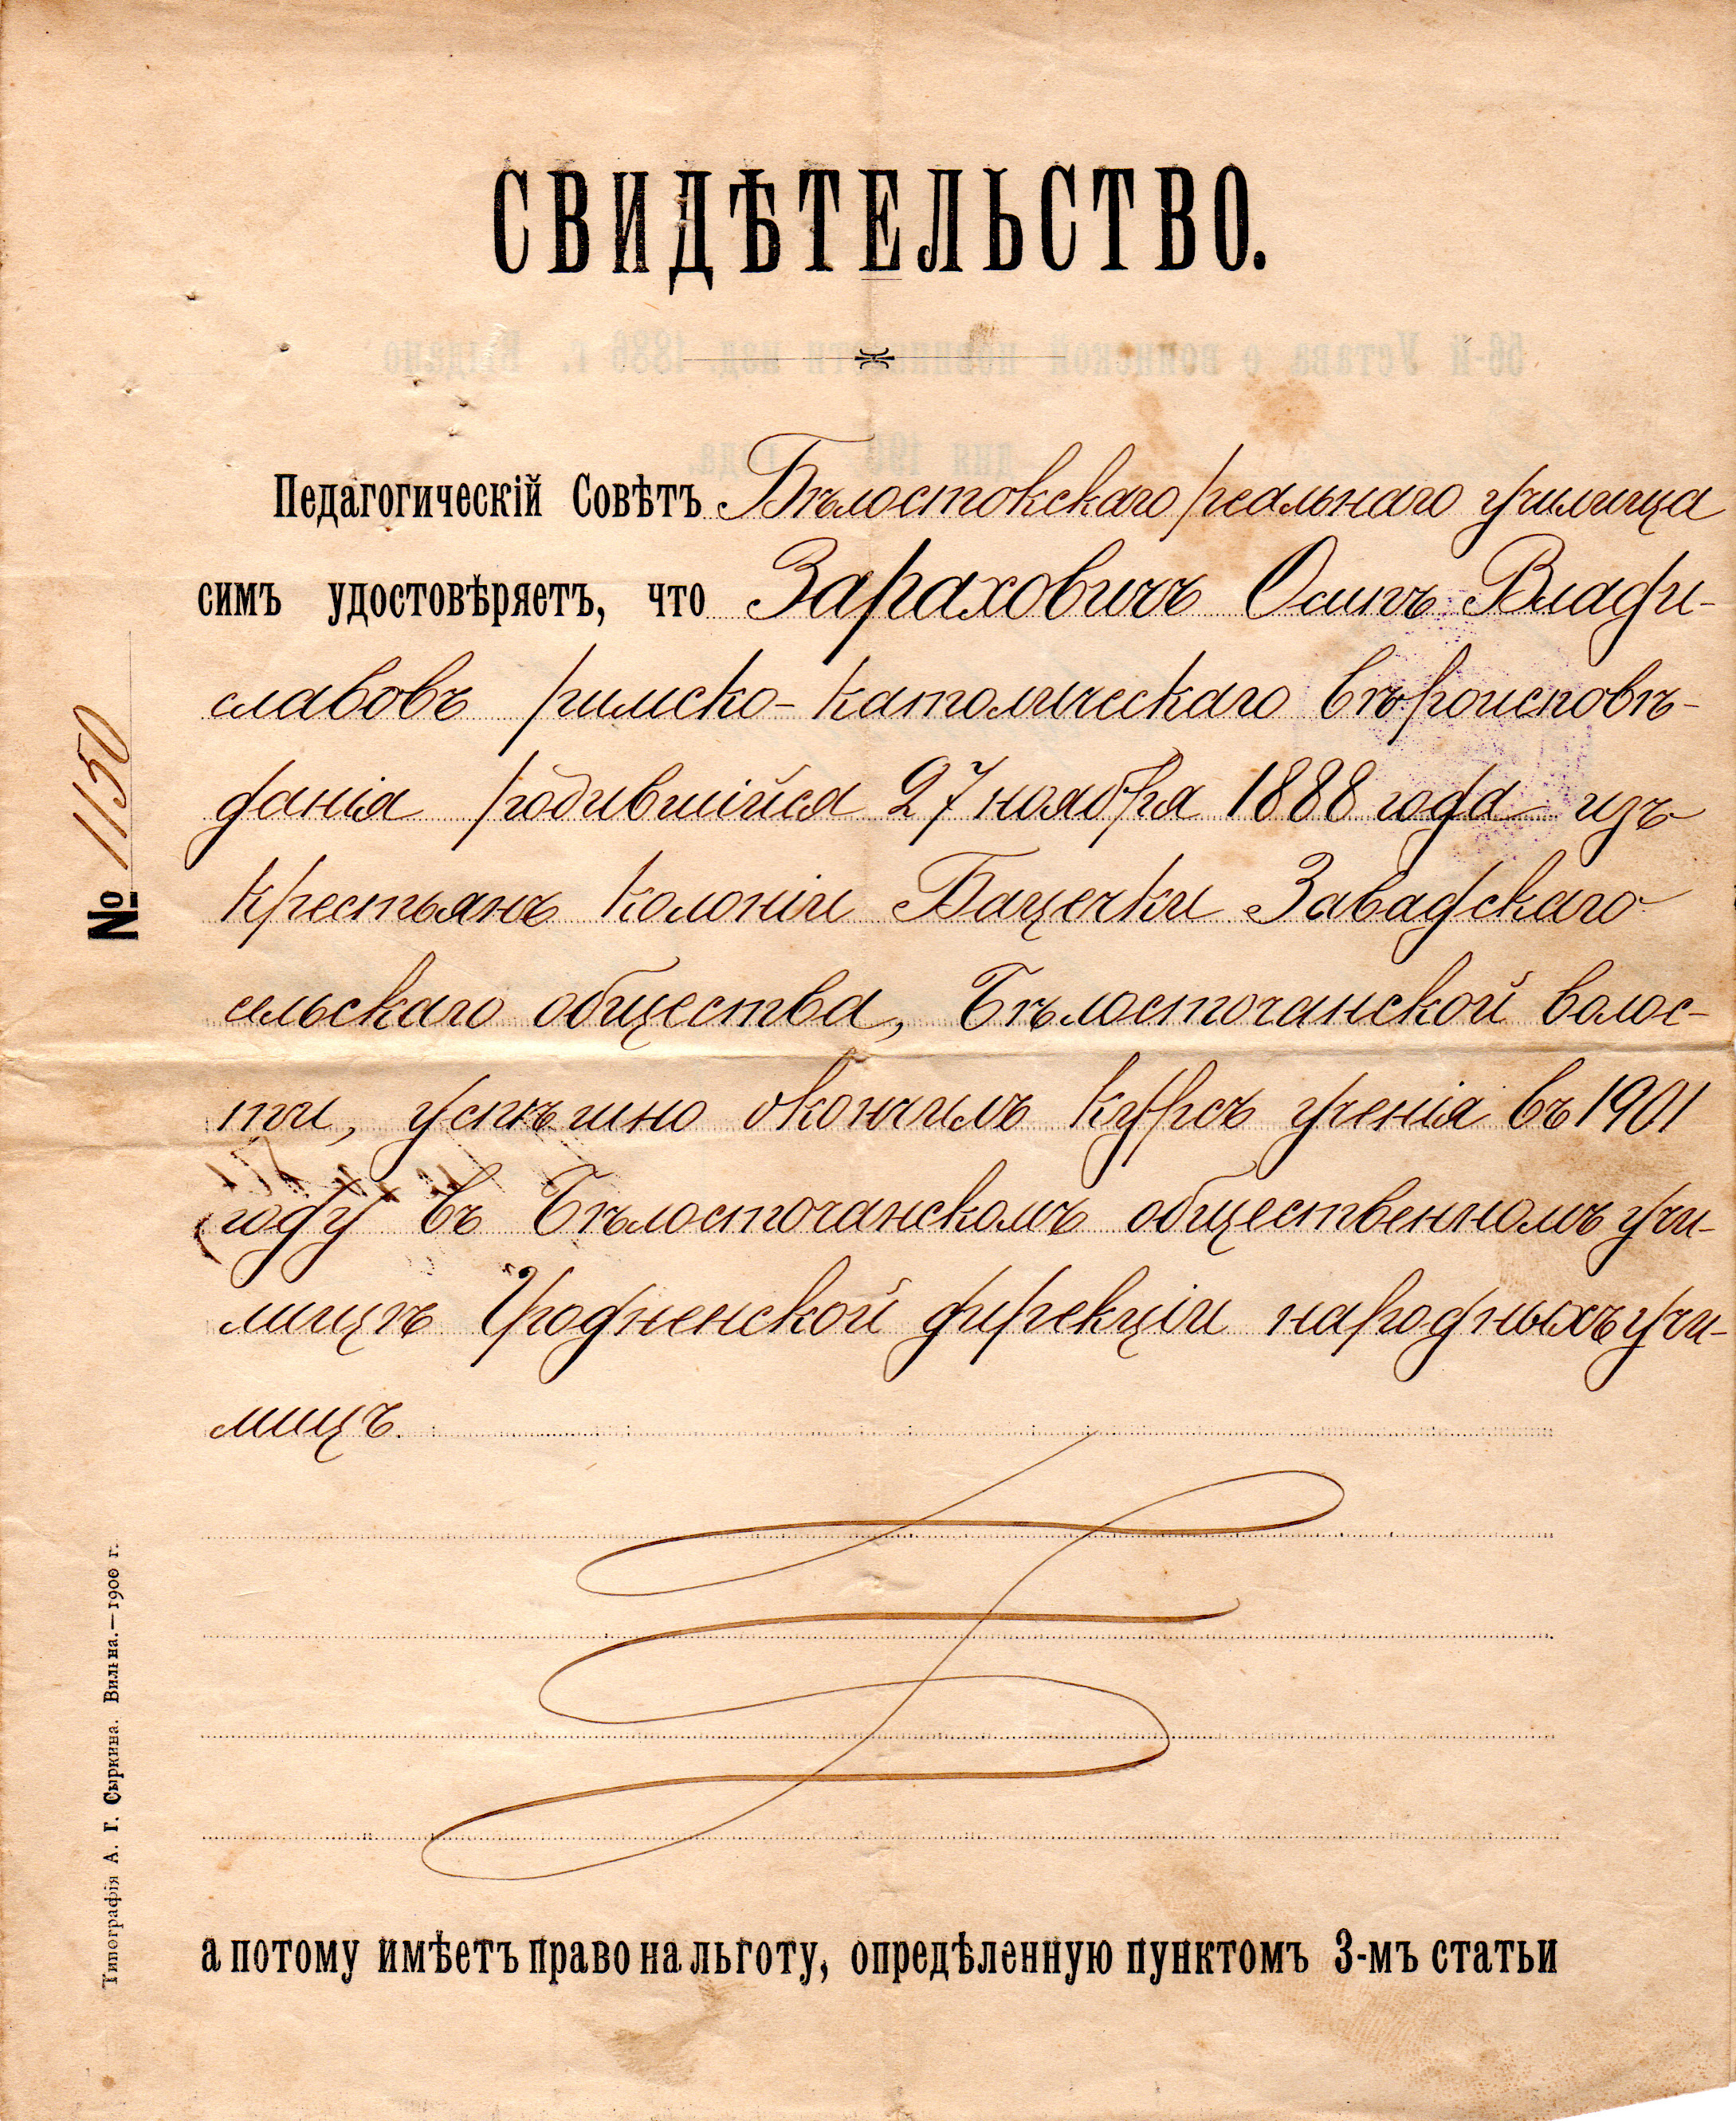 СВИДѢТЕЛЬСТВО.
Педагогическій Совѣтъ Бѣлостокскаго реальнаго училища
симъ удостовѣряетъ, что Зараховичъ Осипъ Влади-
славовъ римско-католическаго вѣроисповѣ-
данія родившійся 27 ноября 1888 года изъ
крестьянъ колоніи Бацечки Завадскаго
сельскаго общества, Бѣлосточанской волос-
ти, успѣшно окончилъ курсъ ученія въ 1901
году въ Бѣлосточанскомъ общественномъ учи-
лищѣ Гродненской дирекціи народныхъ учи-
лищъ.
а потому имѣетъ право на льготу, опредѣленную пунктомъ 3-мъ статьи
№ 1150
Типографія А. Г. Сыркина. Вильна.—1900 г.
56-й Устава о воинской повинности изд. 1886 г. Выдано
дня 190 года.